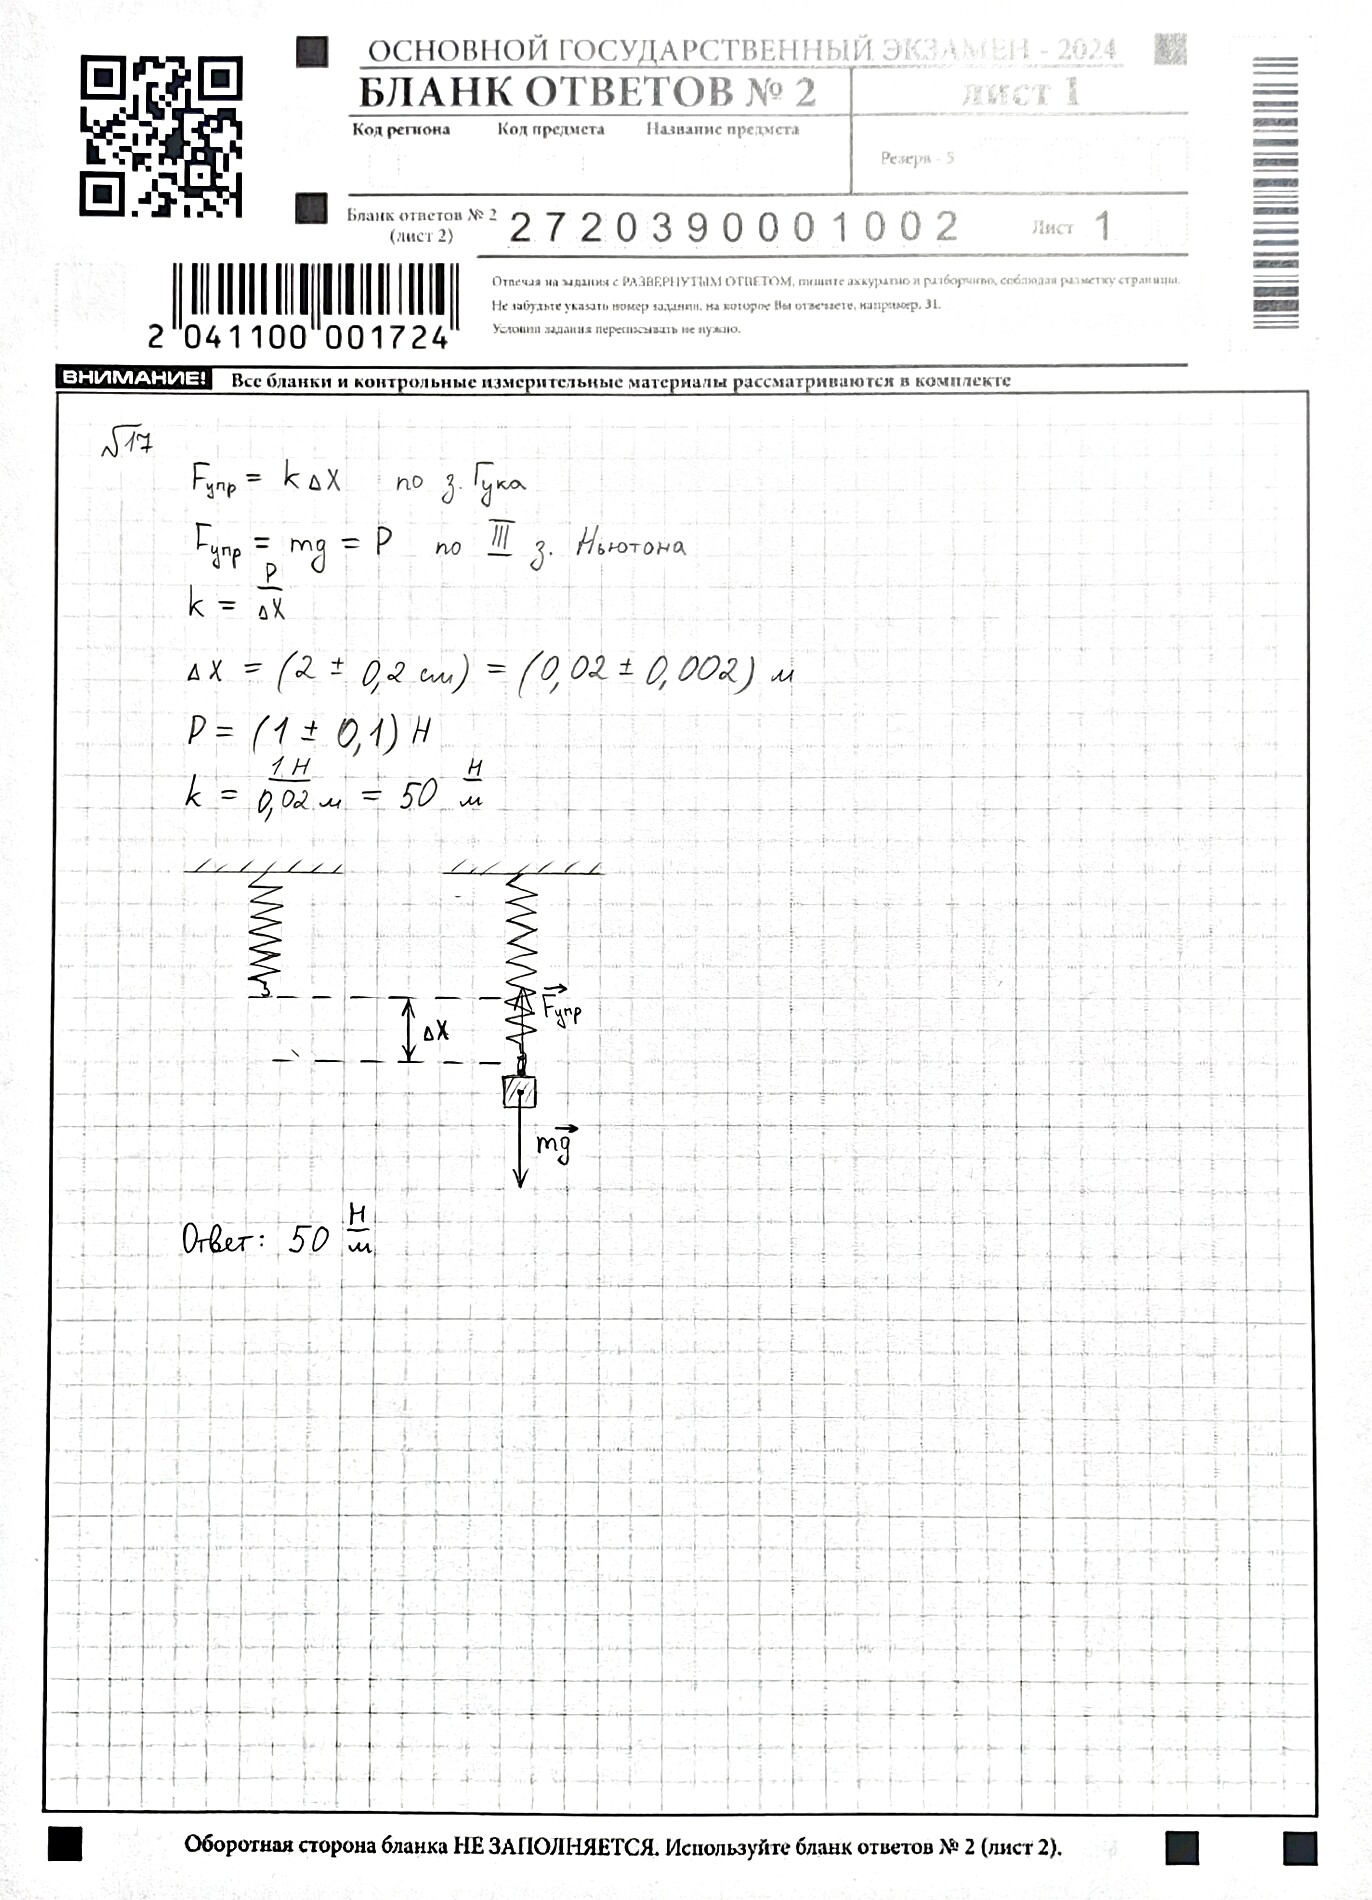 ОСНОВНОЙ ГОСУДАРСТВЕННЫЙ ЭКЗАМЕН - 2024
БЛАНК ОТВЕТОВ № 2
лист 1
Код региона Код предмета Название предмета
Резерв - 5
Бланк ответов № 2
(лист 2)
2720390001002
Лист 1
2 041100 001724
Отвечая на задания с РАЗВЕРНУТЫМ ОТВЕТОМ, пишите аккуратно и разборчиво, соблюдая разметку страницы.
Не забудьте указать номер задания, на которое Вы отвечаете, например, 31.
Условия задания переписывать не нужно.
ВНИМАНИЕ! Все бланки и контрольные измерительные материалы рассматриваются в комплекте
№17
Fупр = k ΔX по з. Гука
Fупр = mg = P по III з. Ньютона
k = P/ΔX
ΔX = (2 ± 0,2 см) = (0,02 ± 0,002) м
P = (1 ± 0,1) Н
k = 1 Н/0,02 м = 50 Н/м
Fупр
ΔX
mg
Ответ: 50 Н/м
Оборотная сторона бланка НЕ ЗАПОЛНЯЕТСЯ. Используйте бланк ответов № 2 (лист 2).